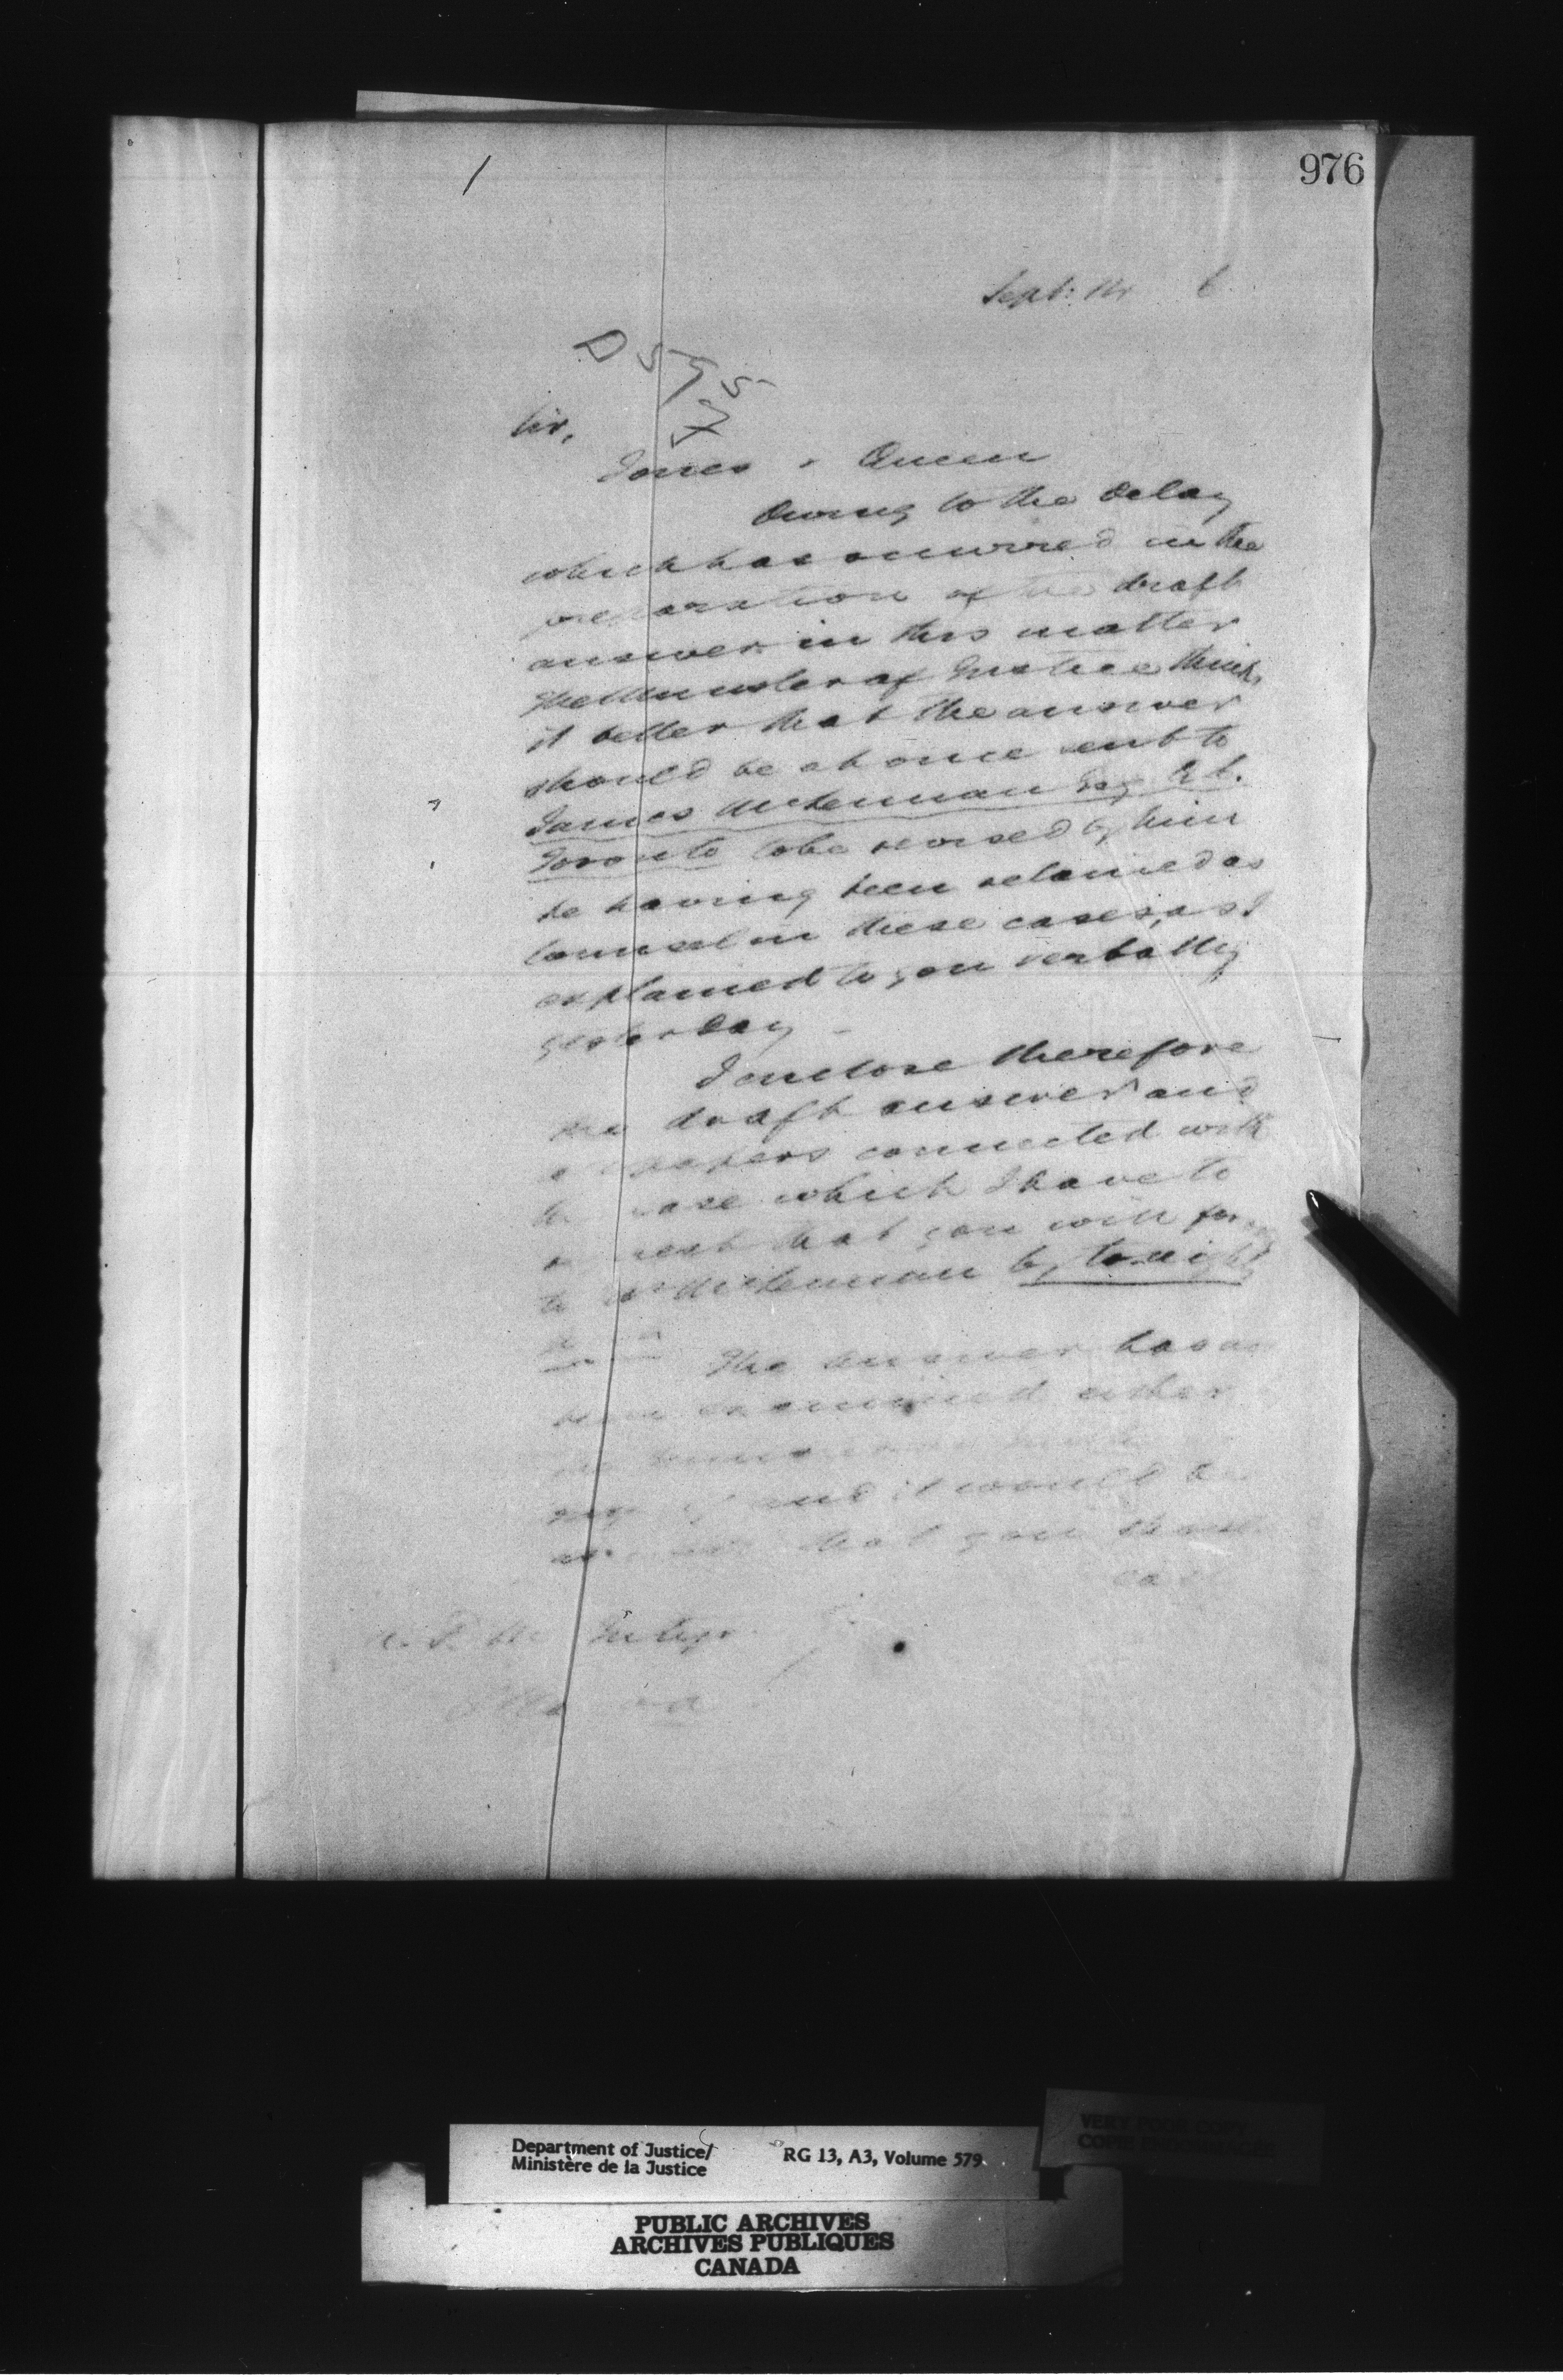 976
Sept: 14 6
D 595
77
Sir,
Jones v Queen
Owing to the delay
which has occurred in the
preparation of the draft
answer in this matter
the Minister of Justice thinks
it better that the answer
should be at once sent to
James McLennan Esq Q.C.
Toronto to be revised by him
he having been retained as
Counsel in these cases, as I
explained to you verbally
yesterday
I enclose therefore
the draft answer and
papers connected with
case which I have to
that you will
to Mr McLennan by to-night
The answer has
been examined either
and it would be
that you should
Ottawa
Department of Justice/
Ministère de la Justice
RG 13, A3, Volume 579
VERY POOR COPY
PUBLIC ARCHIVES
ARCHIVES PUBLIQUES
CANADA